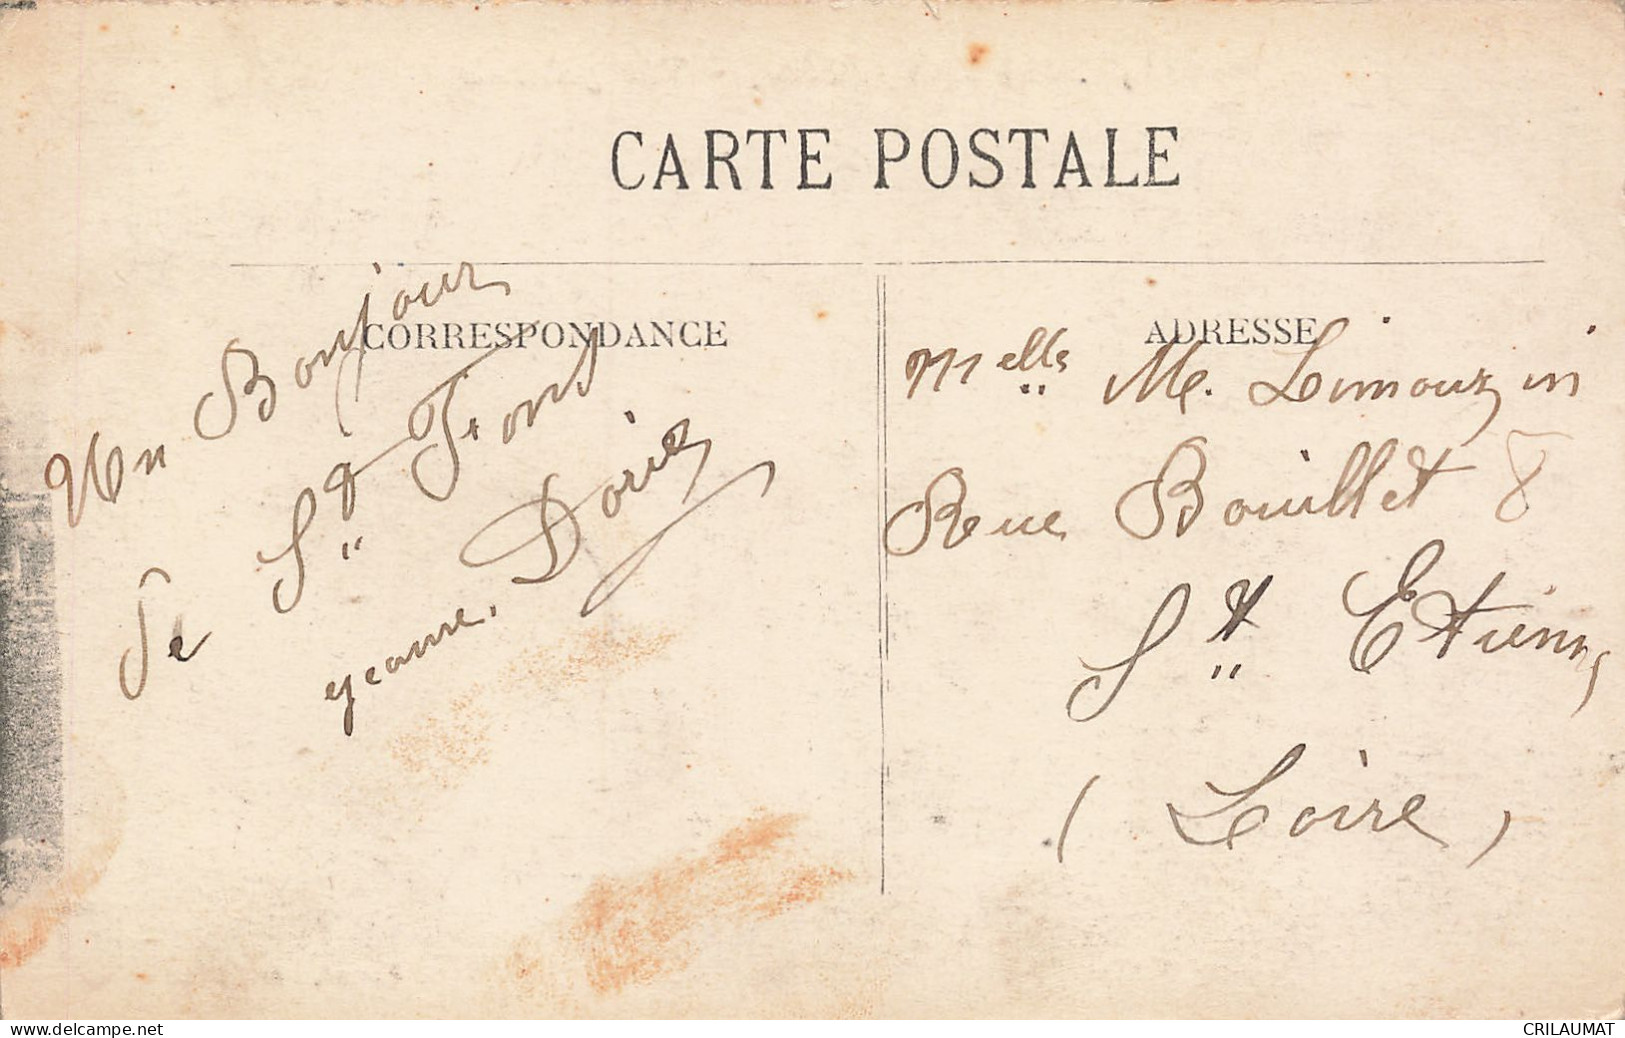 CARTE POSTALE
CORRESPONDANCE
Un Bonjour
de St Front
Jeanne. Doriez
ADRESSE
Melle M. Limouzin
Rue Bouillet 8
St Etienne
(Loire)
www.delcampe.net
CRILAUMAT